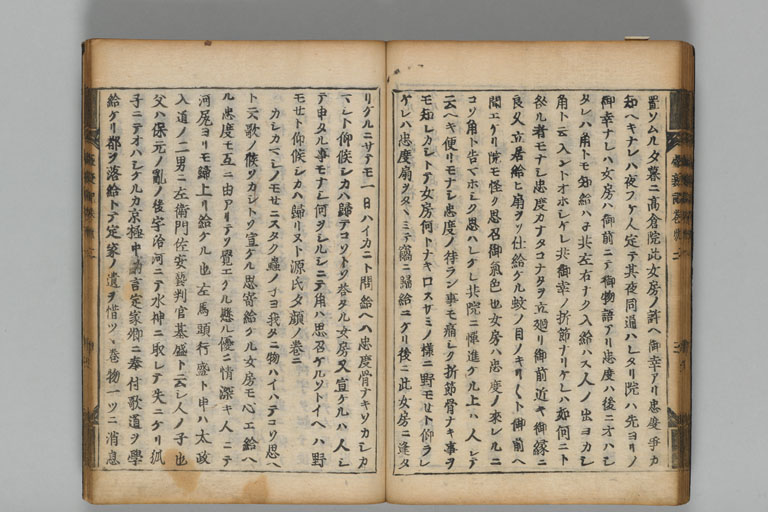 置ソムル夕暮ニ高倉院此女房ノ許ヘ御幸アリ忠度争カ
知ヘキナレハ夜フケ人定テ其夜同道ハレタリ院ハ先ヨリノ
御幸ナレハ女房ハ御前ニテ御物語アリ忠度ハ後ニオハシ
タレハ角トモ知給ハネ共左右ナク入給ハス人ノ出ヨカシ
角ト云入ントオホシケレ共御幸ノ折節ナリケレハ如何ニト
咎ル者モナシ忠度カナタコナタヲ立廻リ御前近キ御縁ニ
良久立居給ヒ扇ヲソ仕給ケル蚊ノ目ノキリ〱ト御前ヘ
聞エケリ院モ怪ク思召御氣色也女房ハ忠度ノ來レルニ
コソ角ト告マホシク思ハレケレ共院ニ憚進ケル上ハ人シテ
云ヘキ便リモナシ忠度ノ待ラン事モ痛シク折節骨ナキ事ヲ
モ知レカシトテ女房何トナキロスサミノ様ニ野モセト仰ラレ
ケレハ忠度扇ヲタヽミテ竊ニ歸給ニケリ後ニ此女房ニ逢タ
リケルニサテモ一日ハイカニト問給ヘハ忠度骨ナキソカシカ
マシト仰候シカハ歸テコソト答タル女房又宣ケルハ人シ
テ申タル事モナシ何ヲシルシニテ角ハ思召ケルソトイヘハ野
モセト仰候シカハ歸リヌト源氏夕顔ノ巻ニ
カシカマシノモセニスタク蟲ノ子ヨ我タニ物ハイハテコソ思ヘ
ト云歌ノ候ソカシトソ宣ケル思寄給ケル女房モ心エ給ヘ
ル忠度モ互ニ由アリテソ覺エケル懸ル優ニ情深キ人ニテ
河尾ヨリモ歸上リ給ケル也左馬頭行盛ト申ハ太政
入道ノ二男ニ左衛門佐安藝判官基盛ト云シ人ノ子也
父ハ保元ノ亂ノ後宇治河ニテ水神ニ取レテ失ニケリ孤
子ニテオハシケルカ京極中納言定家卿ニ奉付歌道ヲ學
給ケリ都ヲ落給トテ定家ノ遺ヲ惜ツヽ巻物一ツニ消息